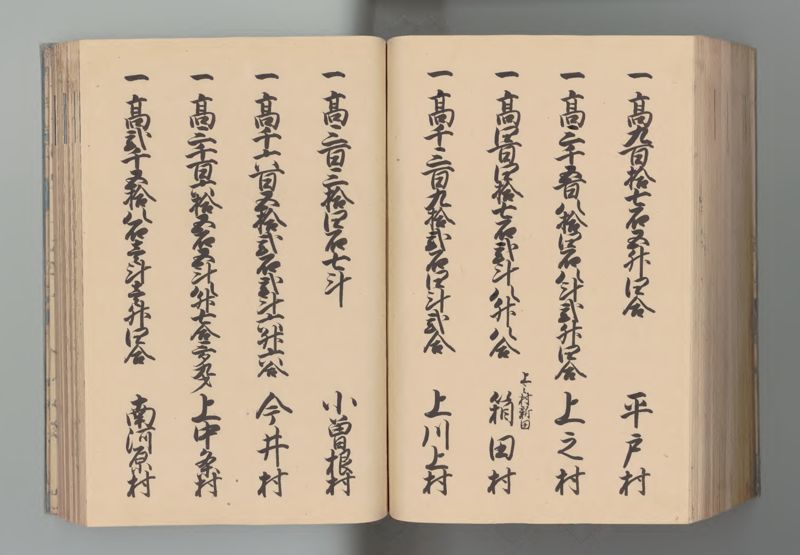 一高九百拾七石五升四合 平戸村
一高三千五百八拾四石八斗弐升四合 上之村
一高四百四拾七石弐斗八升八合
上之村新田
箱田村
一高千三百九拾弐石四斗弐合 上川上村
一高三百三拾四石七斗 小曽根村
一高千六百五拾弐石弐斗六升六合 今井村
上中条村
一高弐千五拾八石壱斗壱升四合 南河原村